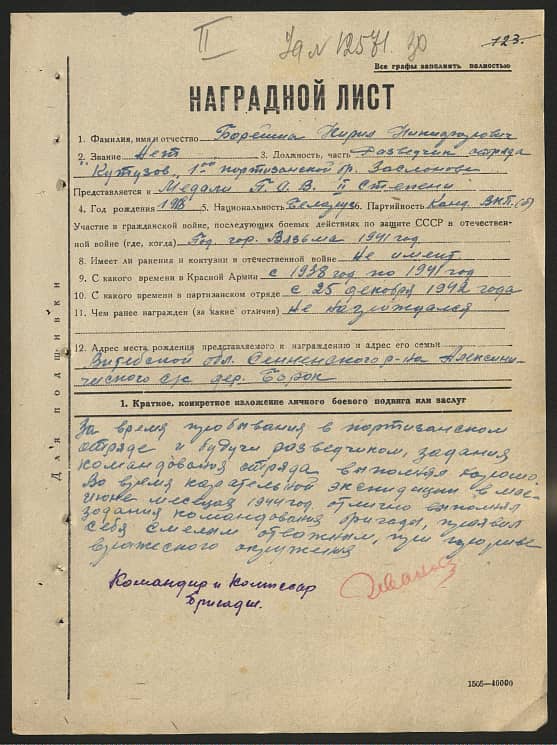 II Уд № 12571. 30 123.
Все графы заполнить полностью
НАГРАДНОЙ ЛИСТ
1. Фамилия, имя и отчество Борейша Кирил Никифорович
2. Звание Нет 3. Должность, часть Разведчик отряда
"Кутузов" 1ой партизанской бр. Заслонова
Представляется к Медали П.О.В. II степени
4. Год рождения 5. Национальность Беларус 6. Партийность Канд. ВКП(б)
Участие в гражданской войне, последующих боевых действиях по защите СССР в отечествен-
ной войне (где, когда) Под гор. Вязьма 1941 год
8. Имеет ли ранения и контузии в отечественной войне Не имеит
9. С какого времени в Красной Армии с 1938 год по 1941 год
10. С какого времени в партизанском отряде с 25 декабря 1942 года
11. Чем ранее награжден (за какие отличия) Не награждался
12. Адрес места рождения представляемого к награждению и адрес его семьи
Витебской обл. Сенненского р-на Алексини-
чиского с/с дер. Борок
1. Краткое, конкретное изложение личного боевого подвига или заслуг
За время пребывания в партизанском
отряде и будучи разведчиком, задания
командования отряда выполнял хорошо.
Во время карательной экспидиции в мае-
июне месяцах 1944 год отлично выполнял
задания командования бригады, проявил
себя смелым отважным, при прорыве
вражеского окружения
Командир и Комиссар
Бригады.
Для подшивки
1505—40000